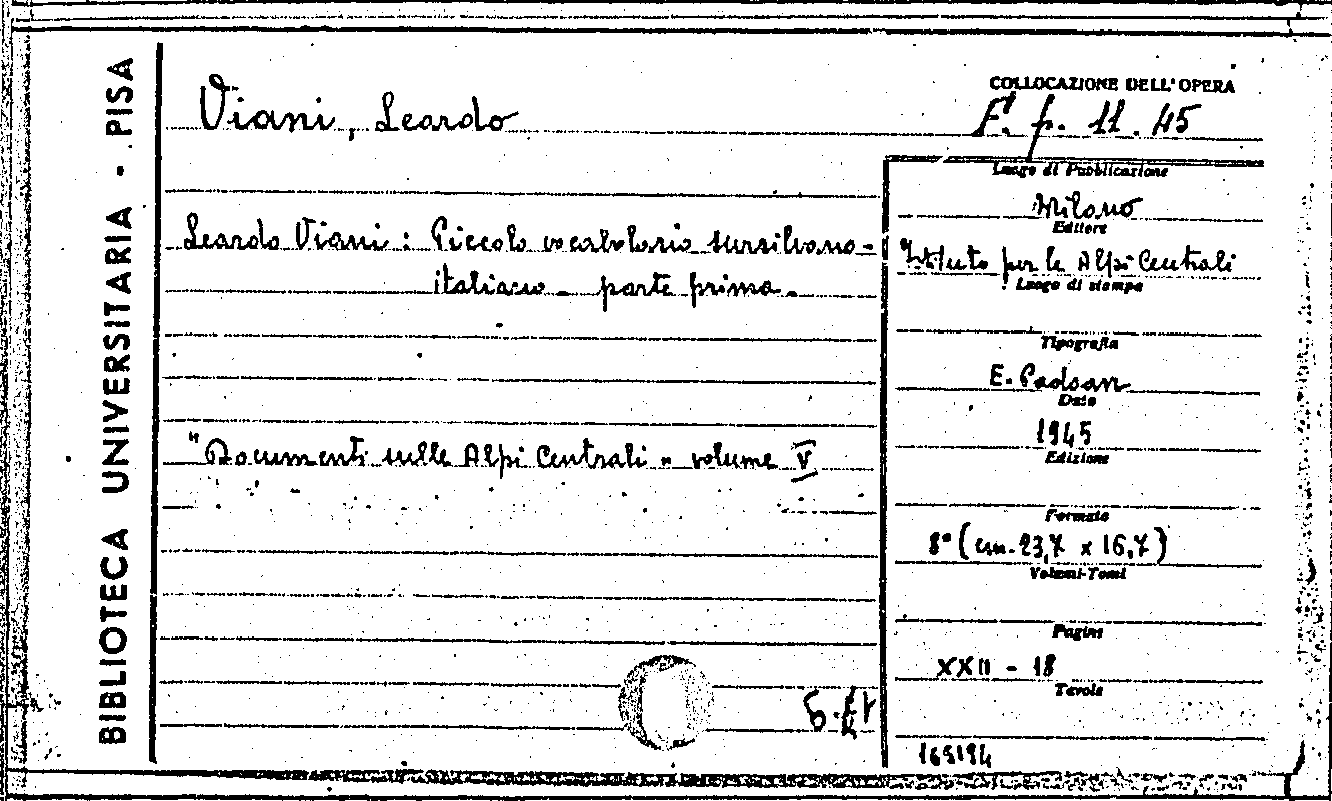 BIBLIOTECA UNIVERSITARIA - PISA
Viani, Leardo
COLLOCAZIONE DELL'OPERA
F. p. 11. 45
Leardo Viani: Piccolo vocabolario sursilvano-
italiano - parte prima -
"Documenti sulle Alpi Centrali" volume V
Luogo di Pubblicazione
Milano
Editore
Istituto per le Alpi Centrali
Luogo di stampa
Tipografia
E. Padoan
Data
1945
Edizione
Formato
8° (cm. 23,7 x 16,7)
Volumi-Tomi
Pagine
XXII - 18
Tavole
165194